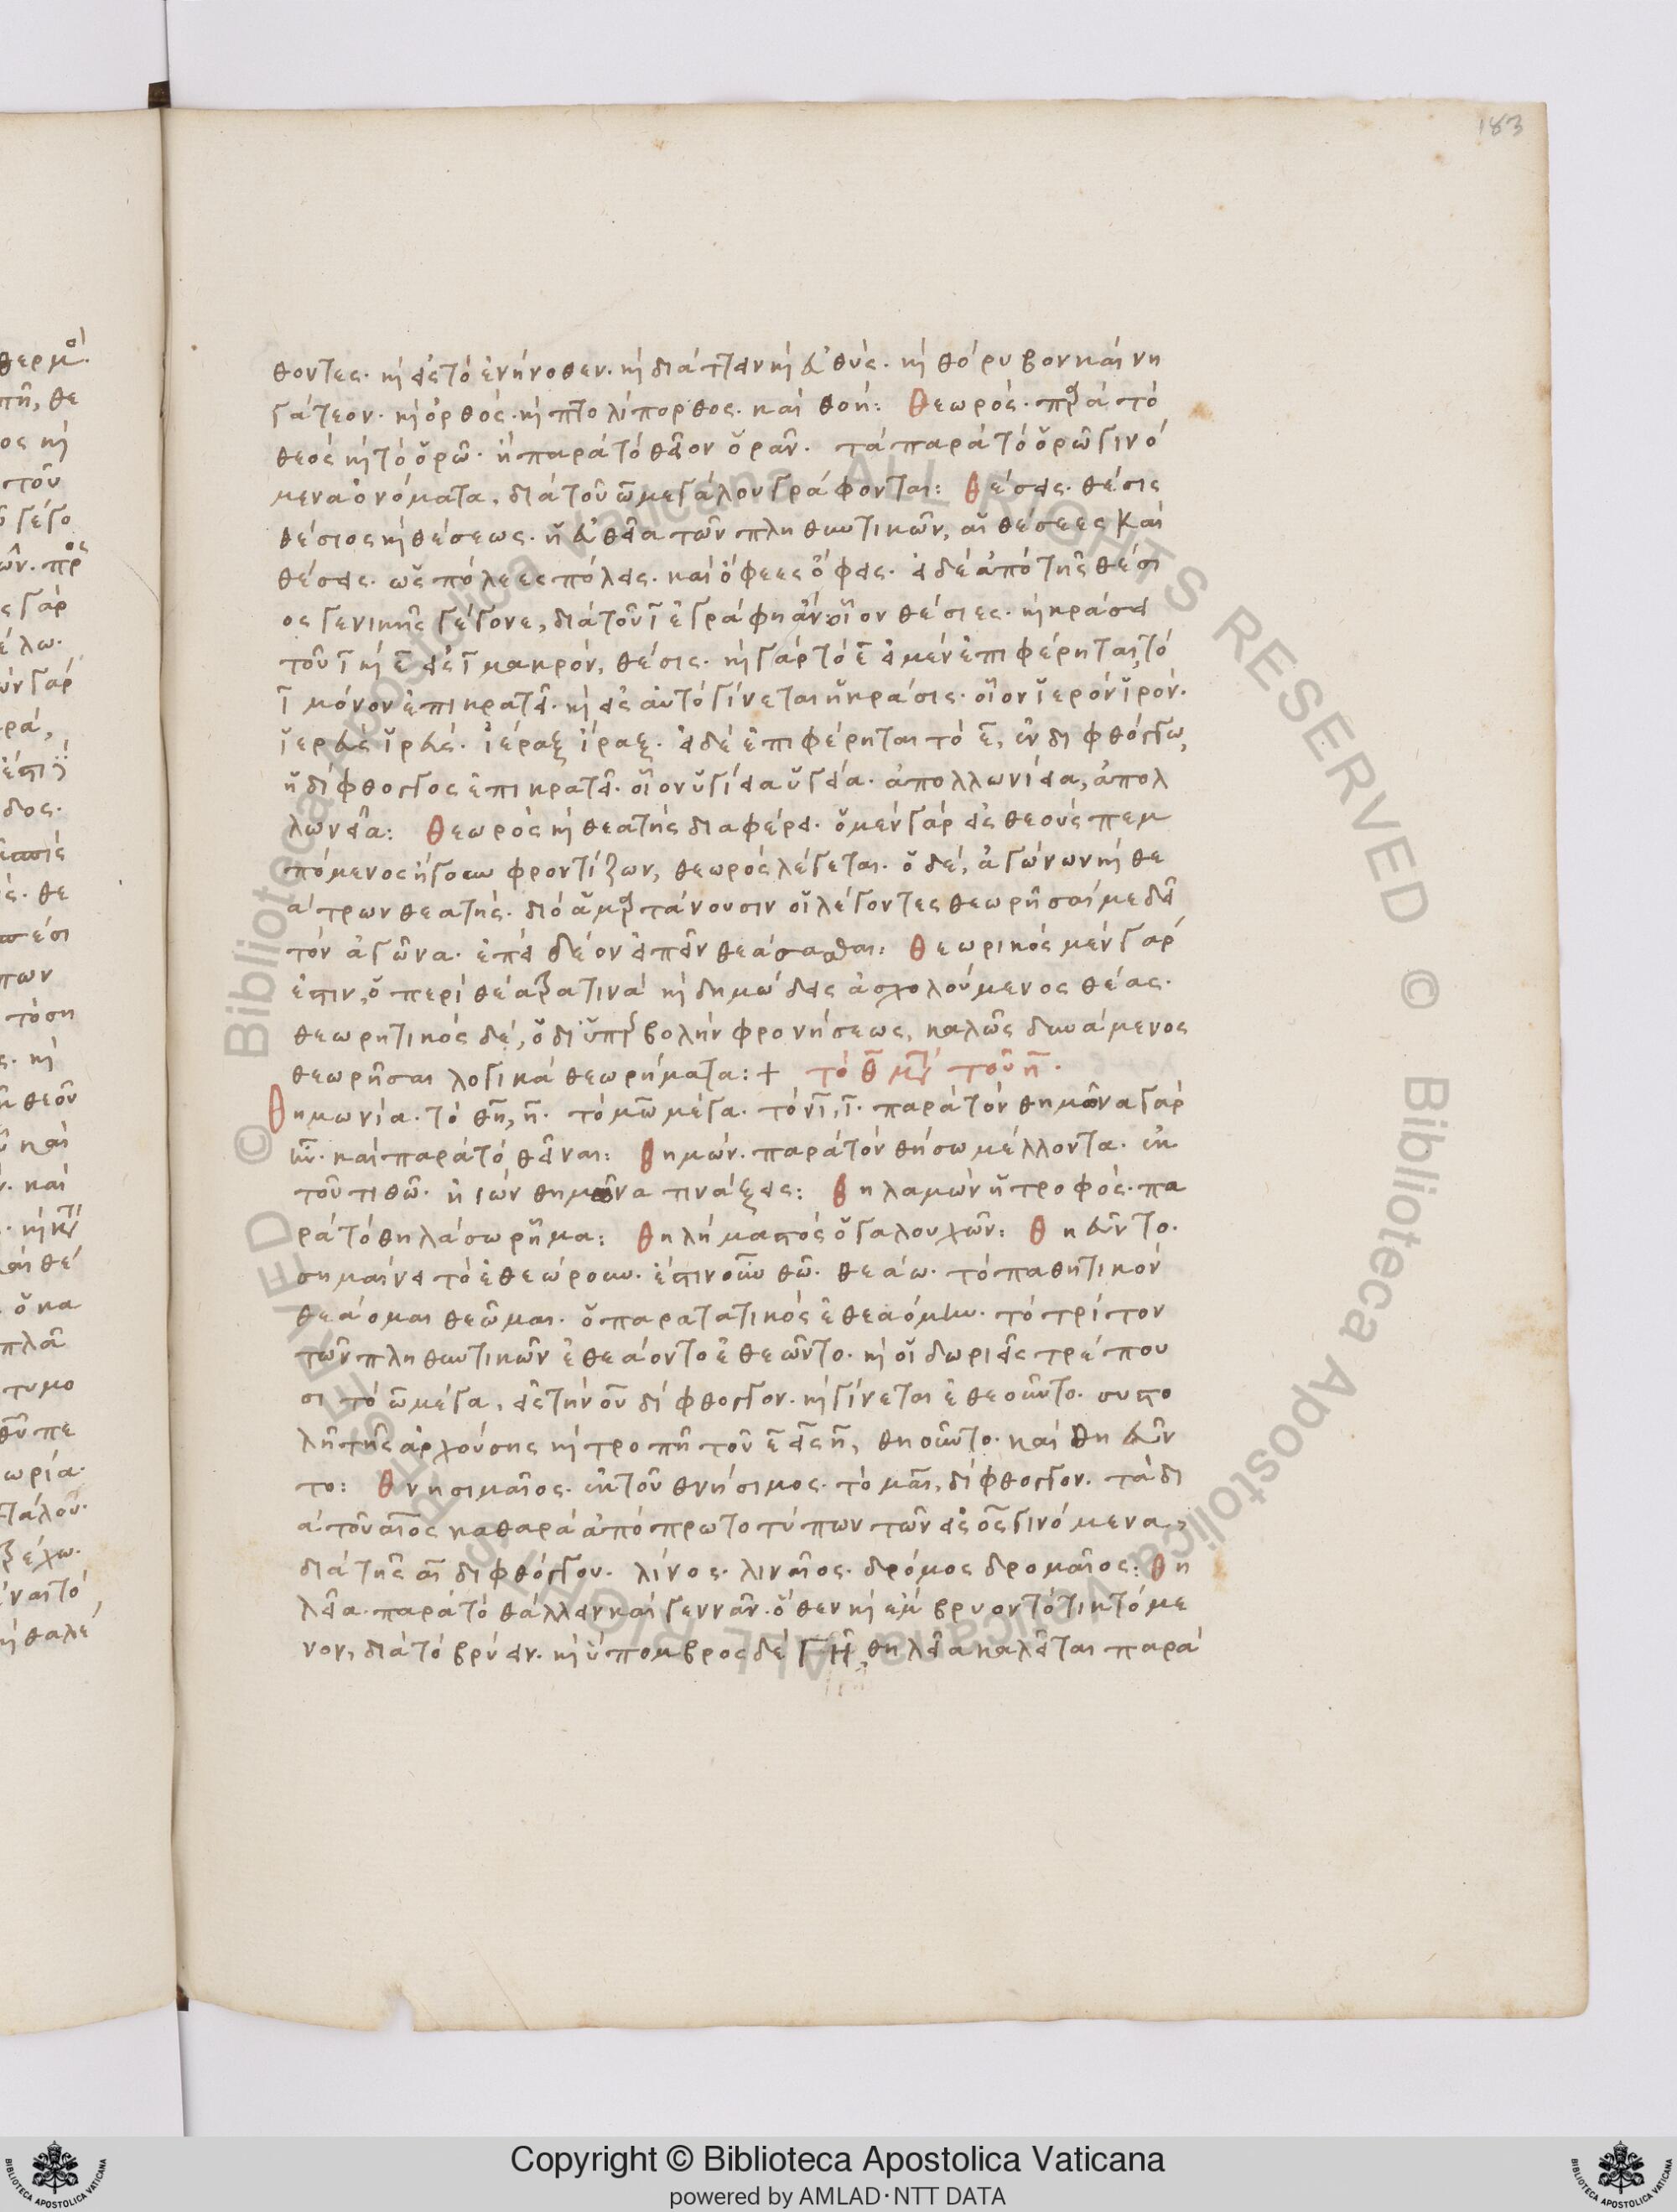 183
θοντες· καὶ εἰς τὸ ἐνήνοθεν· καὶ διάττειν καὶ εὐθύς· καὶ θόρυβον καὶ νη
γάτεον· καὶ ὀρθός· καὶ πτολίπορθος· καὶ θοή: Θεωρός· παρὰ τὸ
θεός καὶ τὸ ὁρῶ· ἢ παρὰ τὸ θεῖον ὁρᾶν· τὰ παρὰ τὸ ὁρῶ γινό
μενα ὀνόματα, διὰ τοῦ ω μεγάλου γράφονται: Θέσεις· θέσις
θέσιος καὶ θέσεως· ἡ εὐθεῖα τῶν πληθυντικῶν, αἱ θέσεες καὶ
θέσεις· ὡς πόλεες πόλεις· καὶ ὄφεες ὄφεις· εἰ δὲ ἀπὸ τῆς θέσι
ος γενικῆς γέγονε, διὰ τοῦ ι ἐγράφη ἄν· οἷον θέσιες· καὶ κράσει
τοῦ ι καὶ ε εἰς ι μακρόν, θέσις· καὶ γὰρ τὸ ε εἰ μὲν ἐπιφέρηται, τὸ
ι μόνον ἐπικρατεῖ· καὶ εἰς αὐτὸ γίνεται ἡ κράσις· οἷον ἱερόν ἱρόν·
ἱερεύς ἱρεύς· ἱέραξ ἵραξ· εἰ δὲ ἐπιφέρηται τὸ ε, ἐν διφθόγγω,
ἡ δίφθογγος ἐπικρατεῖ· οἷον ὑγίεια ὑγεία· ἀπολλωνίεια, ἀπολ
λωνεῖα: Θεωρός καὶ θεατής διαφέρει· ὁ μὲν γὰρ εἰς θεοὺς πεμ
πόμενος ἤγουν φροντίζων, θεωρὸς λέγεται· ὁ δέ, ἀγώνων καὶ θε
άτρων θεατής· διὸ ἁμαρτάνουσιν οἱ λέγοντες θεωρῆσαί με δεῖ
τὸν ἀγῶνα· ἐπεὶ δέον εἰπεῖν θεάσασθαι: Θεωρικὸς μὲν γάρ
ἐστιν, ὁ περὶ θέατρα τινὰ καὶ δημώδεις ἀσχολούμενος θέας·
θεωρητικὸς δέ, ὁ δι ὑπερβολὴν φρονήσεως, καλῶς δυνάμενος
θεωρῆσαι λογικὰ θεωρήματα: + τὸ θ μετὰ τοῦ η·
Θημωνία· τὸ θη, η· τὸ μω μέγα· τὸ νι, ι· παρὰ τὸν θημῶνα γάρ
ην· καὶ παρὰ τὸ θεῖναι: Θημών· παρὰ τὸν θήσω μέλλοντα· ἐκ
τοῦ τιθῶ· ἠΐων θημῶνα τινάξεις: Θηλαμών ἡ τροφός· πα
ρὰ τὸ θηλάσω ρῆμα: Θηλήμαστός ὁ γαλουχῶν: Θηεῦντο·
σημαίνει τὸ ἐθεώρουν· ἔστιν οὖν θῶ· θεάω· τὸ παθητικὸν
θεάομαι θεῶμαι· ὁ παρατατικὸς ἐθεαόμην· τὸ τρίτον
τῶν πληθυντικῶν ἐθεάοντο ἐθεῶντο· καὶ οἱ δωριεῖς τρέπου
σι τὸ ω μέγα, εἰς τὴν ου δίφθογγον· καὶ γίνεται ἐθεοῦντο· συστο
λῆ τῆς ἀρχούσης καὶ τροπῆ τοῦ ε εἰς η, θηοῦντο· καὶ θηεῦν
το: Θνησιμαῖος· ἐκ τοῦ θνήσιμος· τὸ μαι, δίφθογγον· τὰ δι
ὰ τοῦ αιος καθαρὰ ἀπὸ πρωτοτύπων τῶν εἰς ος γινόμενα,
διὰ τῆς αι διφθόγγου· λίνος· λιναῖος· δρόμος δρομαῖος: Θη
λεῖα· παρὰ τὸ θάλλειν καὶ γεννᾶν· ὅθεν καὶ ἔμβρυον τὸ τικτόμε
νον, διὰ τὸ βρύειν· καὶ ὕπομβρος δὲ ΓΗ, θηλεῖα καλεῖται παρά
Copyright © Biblioteca Apostolica Vaticana
powered by AMLAD·NTT DATA